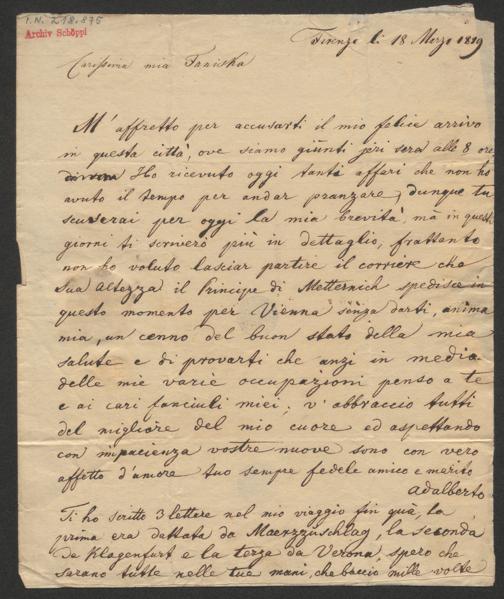 I.N. 218.875
Archiv Schöppl
Firenze li 18 Marzo 1819
Carissima mia Faniska
M'affretto per accusarti il mio felice arrivo
in questa città, ove siamo giunti jeri sera alle 8 ore
Ho ricevuto oggi tanti affari che non ho
avuto il tempo per andar pranzare, dunque tu
scuserai per oggi la mia brevità, mà in questi
giorni ti scriverò più in dettaglio, frattanto
non ho voluto lasciar partire il corriere che
Sua Altezza il Principe di Metternich spedisce in
questo momento per Vienna senza darti, anima
mia, un cenno del buon stato della mia
salute e di provarti che anzi in media
delle mie varie occupazioni penso a te
e ai cari fanciuli miei; v'abbraccio tutti
del migliore del mio cuore ed aspettando
con impacienza vostre nuove sono con vero
affetto d'amore tuo sempre fedele amico e marito
Adalberto
Ti ho scritto 3 lettere nel mio viaggio fin quà, la
prima era dattata da Maerzzuschlag, la seconda
de Klagenfurt e la terza da Verona, spero che
sarano tutte nelle tue mani, che baccio mille volte